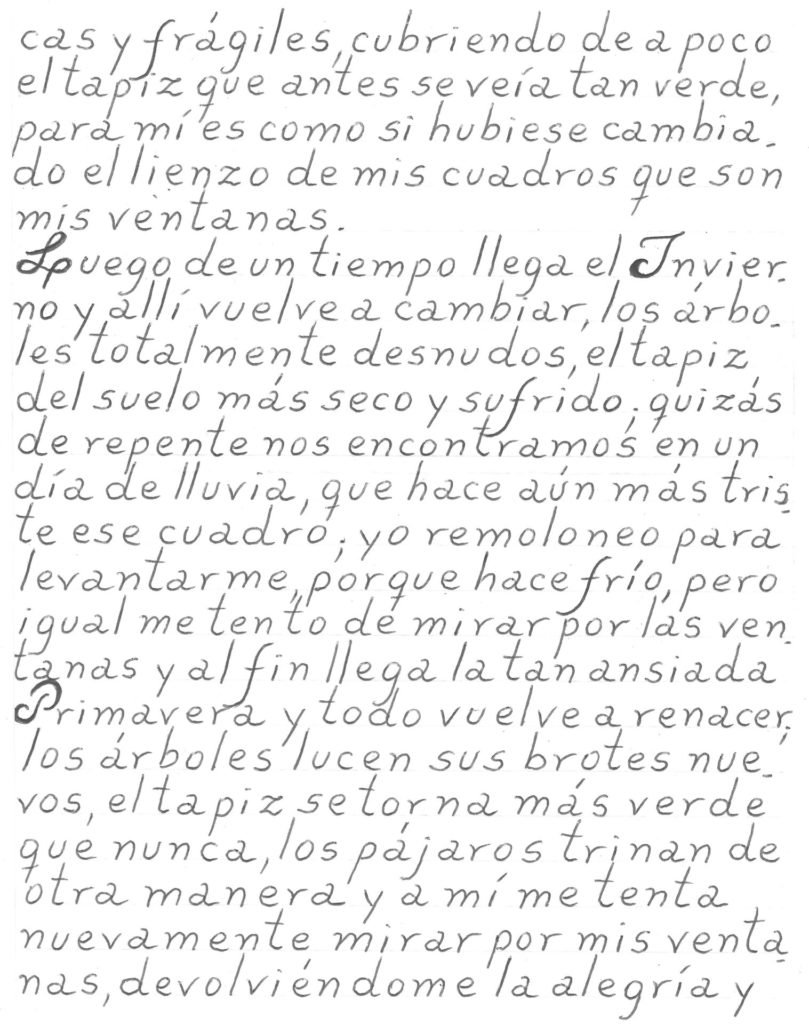 cas y frágiles, cubriendo de a poco
el tapiz que antes se veía tan verde,
para mí es como si hubiese cambia-
do el lienzo de mis cuadros que son
mis ventanas.
Luego de un tiempo llega el Invier-
no y allí vuelve a cambiar, los árbo-
les totalmente desnudos, el tapiz
del suelo más seco y sufrido; quizás
de repente nos encontramos en un
día de lluvia, que hace aún más tris-
te ese cuadro; yo remoloneo para
levantarme, porque hace frío, pero
igual me tento de mirar por las ven-
tanas y al fin llega la tan ansiada
Primavera y todo vuelve a renacer;
los árboles lucen sus brotes nue-
vos, el tapiz se torna más verde
que nunca, los pájaros trinan de
otra manera y a mí me tenta
nuevamente mirar por mis venta-
nas, devolviéndome la alegría y